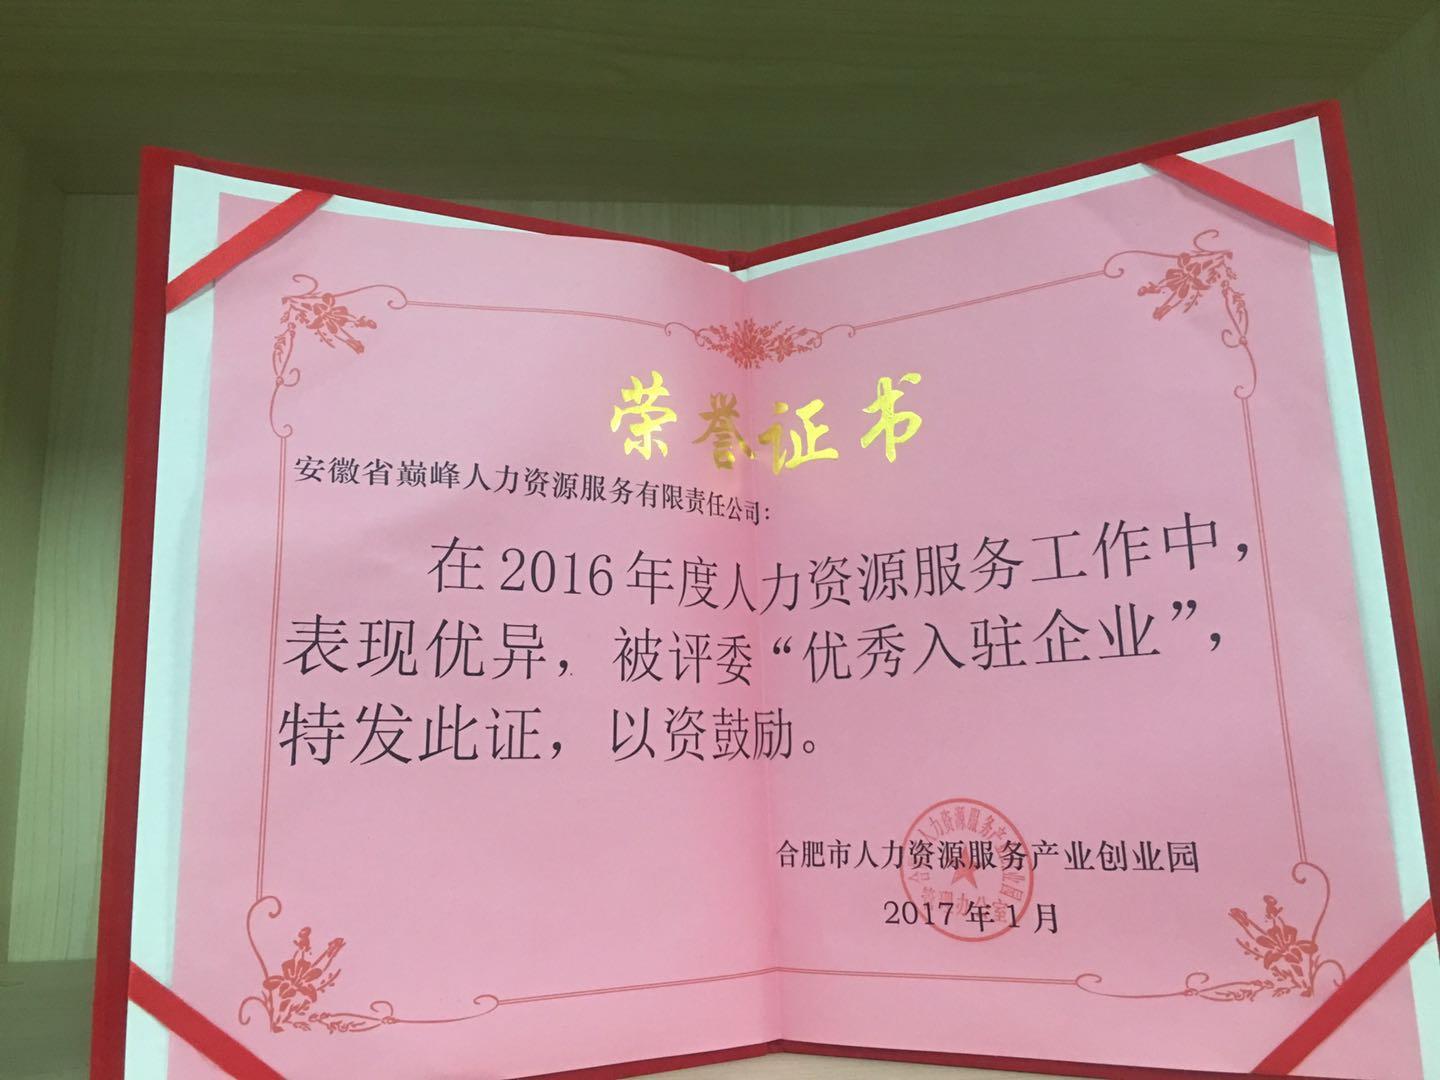 荣誉证书
安徽省巅峰人力资源服务有限责任公司：
在2016年度人力资源服务工作中，
表现优异，被评委“优秀入驻企业”，
特发此证，以资鼓励。
合肥市人力资源服务产业创业园
2017年1月
管理办公室